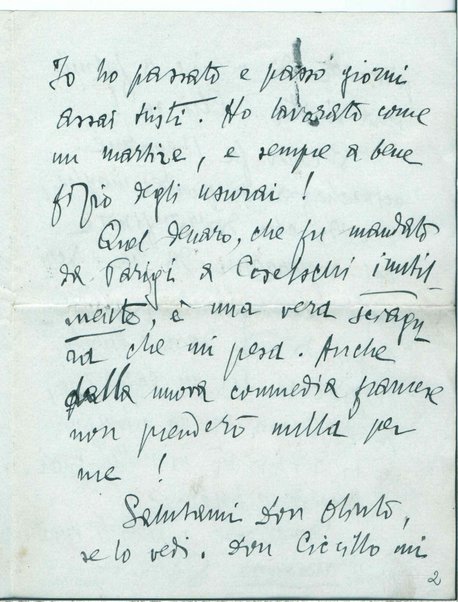 Io ho passato e passo giorni
assai tristi. Ho lavorato come
un martire, e sempre a bene
fizio degli usurai!
Quel denaro, che fu mandato
da Parigi a Coselschi inutil
mente, è una vera sciagu
ra che mi pesa. Anche
dalla nuova commedia francese
non prenderò nulla per
me!
Salutami Don Olinto,
se lo vedi. Don Ciccillo mi
2